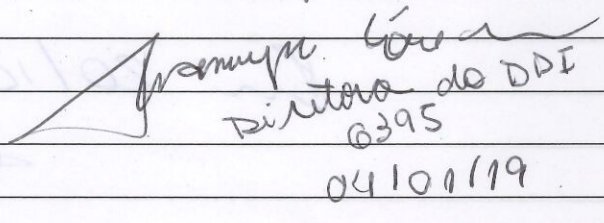 Diretora do DDI
6395
04/01/19